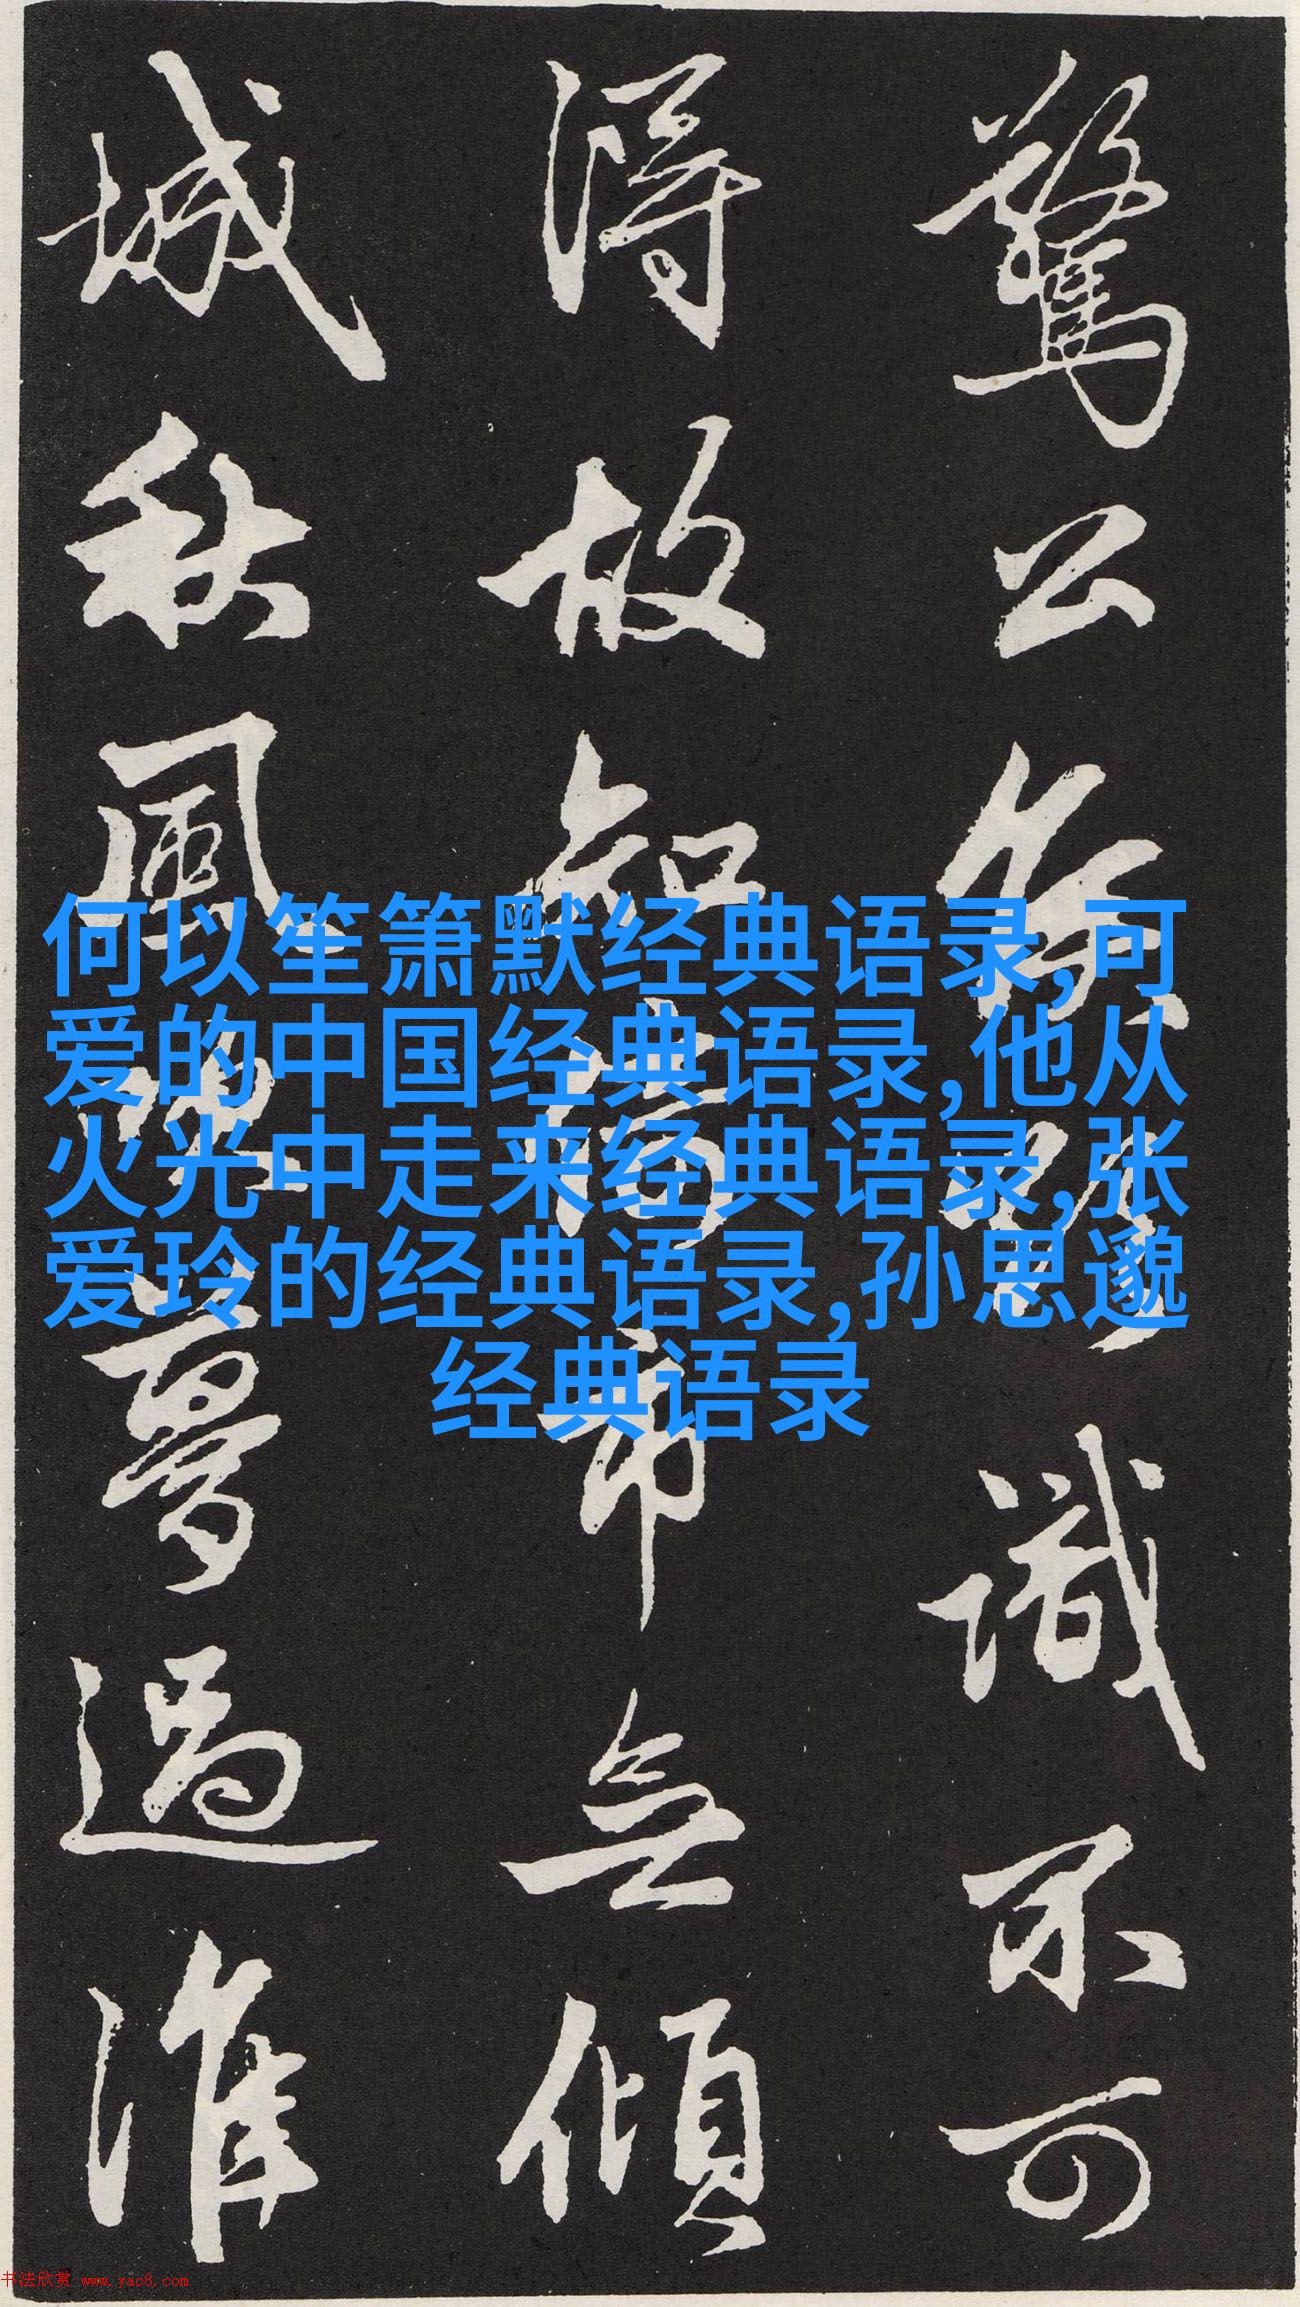 驚公多難識不可
得故知倚市無傾
城秋風吹夢過淮
何以笙箫默经典语录,可
爱的中国经典语录,他从
火光中走来经典语录,张
爱玲的经典语录,孙思邈
经典语录
书法欣赏 www.yac8.com